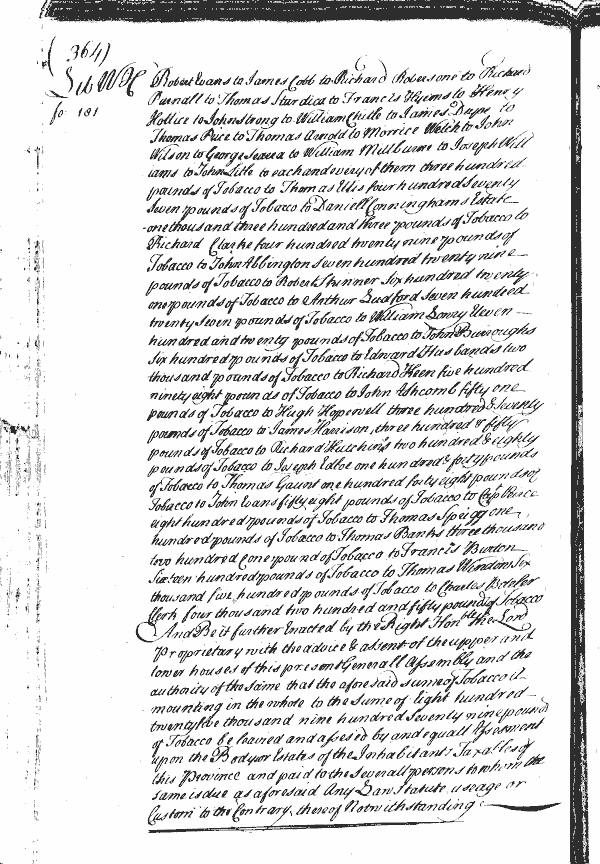 (364)
Lib WHC
fo: 181
Robert Evans to James Cobb to Richard Robersone to Richard
Purnall to Thomas Sturdica to Francis to Henry
Hollice to John strong to William Chitle to James Dupe to
Thomas Price to Thomas Arnold to Morrice Welch to John
Wilson to George to William Millburne to Joseph Will
iams to John Litle to each and every of them three hundred
pounds of Tobacco to Thomas Ellis four hundred Seventy
Seven pounds of Tobacco to Daniell Conninghams Estate
one thousand three hundred and three pounds of Tobacco to
Richard Clarke four hundred twenty nine pounds of
Tobacco to John Abbington Seven hundred twenty nine
pounds of Tobacco to Robert Skinner Six hundred twenty
one pounds of Tobacco to Arthur Ludford Seven hundred
twenty Seven pounds of Tobacco to William Lowry Eleven
hundred and twenty pounds of Tobacco to John Burroughs
Six hundred pounds of Tobacco to Edward Husbands two
thousand pounds of Tobacco to Richard Keen five hundred
ninety eight pounds of Tobacco to John Ashcomb fifty one
pounds of Tobacco to Hugh Hopewell three hundred & Seventy
pounds of Tobacco to James Harrison, three hundred & fifty
pounds of Tobacco to Richard Hutchins two hundred & eighty
pounds of Tobacco to Joseph Edloe one hundred & forty pounds
of Tobacco to Thomas Gaunt one hundred forty eight pounds of
Tobacco to John Evans fifty eight pounds of Tobacco to Capt
eight hundred pounds of Tobacco to Thomas Sprigg one
hundred pounds of Tobacco to Thomas Banks three thousand
two hundred & one pound of Tobacco to Francis Buxton
Sixteen hundred pounds of Tobacco to Thomas Windom Six
thousand five hundred pounds of Tobacco to Charles Boteler
Clerk four thousand two hundred and fifty pounds of Tobacco
And Be it further Enacted by the Right Honble the Lord
Proprietary with the advice & assent of the upper and
lower houses of this present Generall Assembly and the
authority of the same that the aforesaid sume of Tobacco a-
mounting in the whole to the Sume of Eight hundred
twenty five thousand nine hundred Seventy nine pound
of Tobacco be leavied and assesed by and equall Assesment
upon the Body or Estates of the Inhabitants & Taxables of
this Province and paid to the Severall persons to whom the
same is due as aforesaid Any Law Statute useage or
Custom to the Contrary thereof Notwithstanding